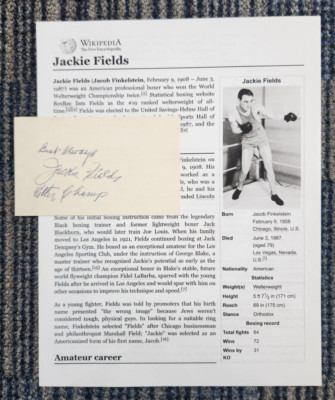 WIKIPEDIA
The Free Encyclopedia
Jackie Fields
Jackie Fields (Jacob Finkelstein, February 9, 1908 – June 3,
1987) was an American professional boxer who won the World
Welterweight Championship twice.[2] Statistical boxing website
BoxRec lists Fields as the #19 ranked welterweight of all-
time.[3][4] Fields was elected to the United Savings-Helms Hall of
Sports Hall of
1987, and the
Finkelstein on
9, 1908. His
worked as a
who was a
he and his
Lincoln
Best Always
Jackie Fields
Champ
Some of his initial boxing instruction came from the legendary
Black boxing trainer and former lightweight boxer Jack
Blackburn, who would later train Joe Louis. When his family
moved to Los Angeles in 1921, Fields continued boxing at Jack
Dempsey's Gym. He boxed as an exceptional amateur for the Los
Angeles Sporting Club, under the instruction of George Blake, a
master trainer who recognized Jackie's potential as early as the
age of thirteen.[10] An exceptional boxer in Blake's stable, future
world flyweight champion Fidel LaBarba, sparred with the young
Fields after he arrived in Los Angeles and would spar with him on
other occasions to improve his technique and speed.[7]
As a young fighter, Fields was told by promoters that his birth
name presented "the wrong image" because Jews weren't
considered tough, physical guys. In looking for a suitable ring
name, Finkelstein selected "Fields" after Chicago businessman
and philanthropist Marshall Field; "Jackie" was selected as an
Americanized form of his first name, Jacob.[10]
Amateur career
Jackie Fields
Born Jacob Finkelstein
February 9, 1908
Chicago, Illinois, U.S.
Died June 3, 1987
(aged 79)
Las Vegas, Nevada,
U.S.[1]
Nationality American
Statistics
Weight(s) Welterweight
Height 5 ft 7½ in (171 cm)
Reach 69 in (175 cm)
Stance Orthodox
Boxing record
Total fights 84
Wins 72
Wins by 31
KO